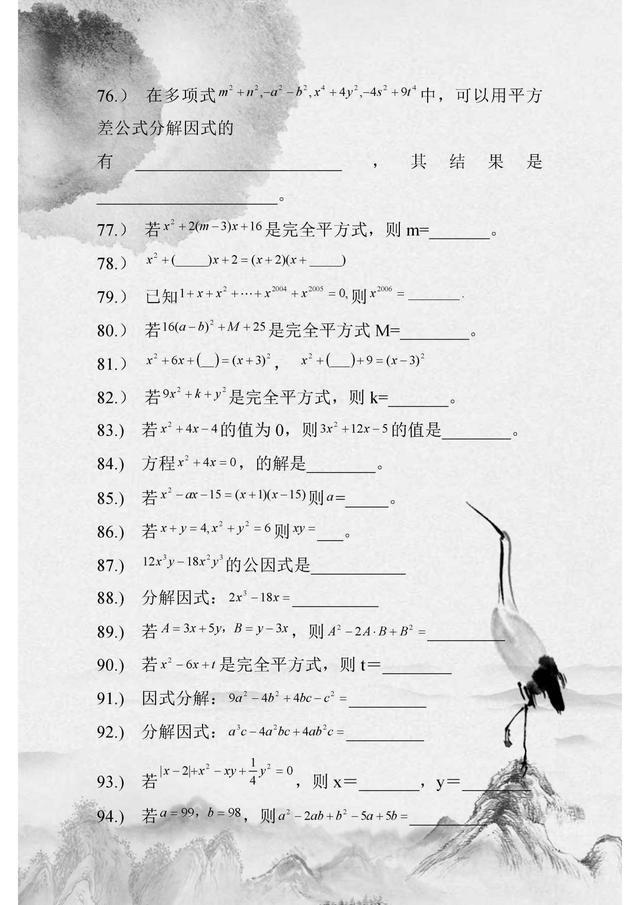 76.） 在多项式 m²+n²,-a²-b²,x⁴+4y²,-4s²+9t⁴ 中，可以用平方
差公式分解因式的
有 ____________________ ，其结果是
____________________。
77.） 若 x²+2(m-3)x+16 是完全平方式，则 m=_______。
78.） x²+(____)x+2=(x+2)(x+____)
79.） 已知 1+x+x²+⋯+x²⁰⁰⁴+x²⁰⁰⁵=0, 则 x²⁰⁰⁶=_______.
80.） 若 16(a-b)²+M+25 是完全平方式 M=________。
81.） x²+6x+(__)=(x+3)²， x²+(___)+9=(x-3)²
82.） 若 9x²+k+y² 是完全平方式，则 k=_______。
83.) 若 x²+4x-4 的值为 0，则 3x²+12x-5 的值是________。
84.) 方程 x²+4x=0，的解是________。
85.) 若 x²-ax-15=(x+1)(x-15) 则 a=_____。
86.) 若 x+y=4,x²+y²=6 则 xy=___。
87.) 12x³y-18x²y³ 的公因式是___________
88.) 分解因式：2x³-18x=__________
89.) 若 A=3x+5y，B=y-3x，则 A²-2A·B+B²=_________
90.) 若 x²-6x+t 是完全平方式，则 t＝________
91.) 因式分解：9a²-4b²+4bc-c²=_________
92.) 分解因式：a³c-4a²bc+4ab²c=_________
93.) 若 |x-2|+x²-xy+\frac{1}{4}y²=0，则 x＝_______，y＝________
94.) 若 a=99，b=98，则 a²-2ab+b²-5a+5b=_________